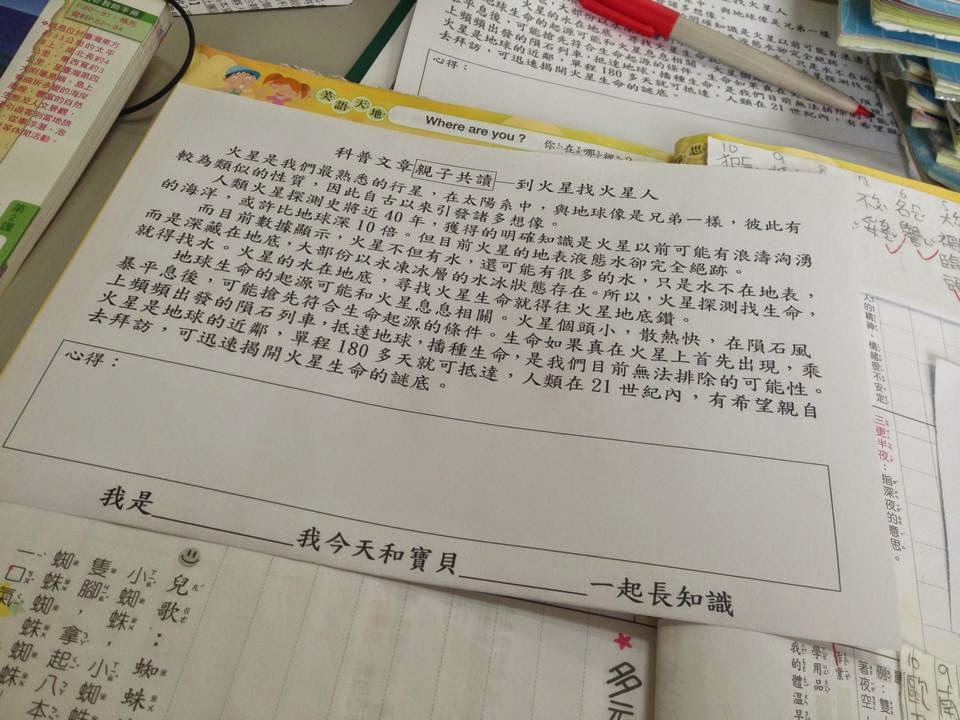 英語天地
Where are you ?
你在哪裡?
科普文章親子共讀—到火星找火星人
火星是我們最熟悉的行星，在太陽系中，與地球像是兄弟一樣，彼此有
較為類似的性質，因此自古以來引發諸多想像。
人類火星探測史將近 40 年，獲得的明確知識是火星以前可能有浪濤洶湧
的海洋，或許比地球深 10 倍。但目前火星的地表液態水卻完全絕跡。
而目前數據顯示，火星不但有水，還可能有很多的水，只是水不在地表，
而是深藏在地底，大部份以永凍冰層的水冰狀態存在。所以，火星探測找生命，
就得找水。火星的水在地底，尋找火星生命就得往火星地底鑽。
地球生命的起源可能和火星息息相關。火星個頭小，散熱快，在隕石風
暴平息後，可能搶先符合生命起源的條件。生命如果真在火星上首先出現，乘
上頻頻出發的隕石列車，抵達地球，播種生命，是我們目前無法排除的可能性。
火星是地球的近鄰，單程 180 多天就可抵達，人類在 21 世紀內，有希望親自
去拜訪，可迅速揭開火星生命的謎底。
心得：
我是＿＿＿＿＿我今天和寶貝＿＿＿＿＿一起長知識
心得：
三更半夜：指深夜的意思。
兒歌：
小蜘蛛
隻腳，
蜘蛛蜘蛛
多元